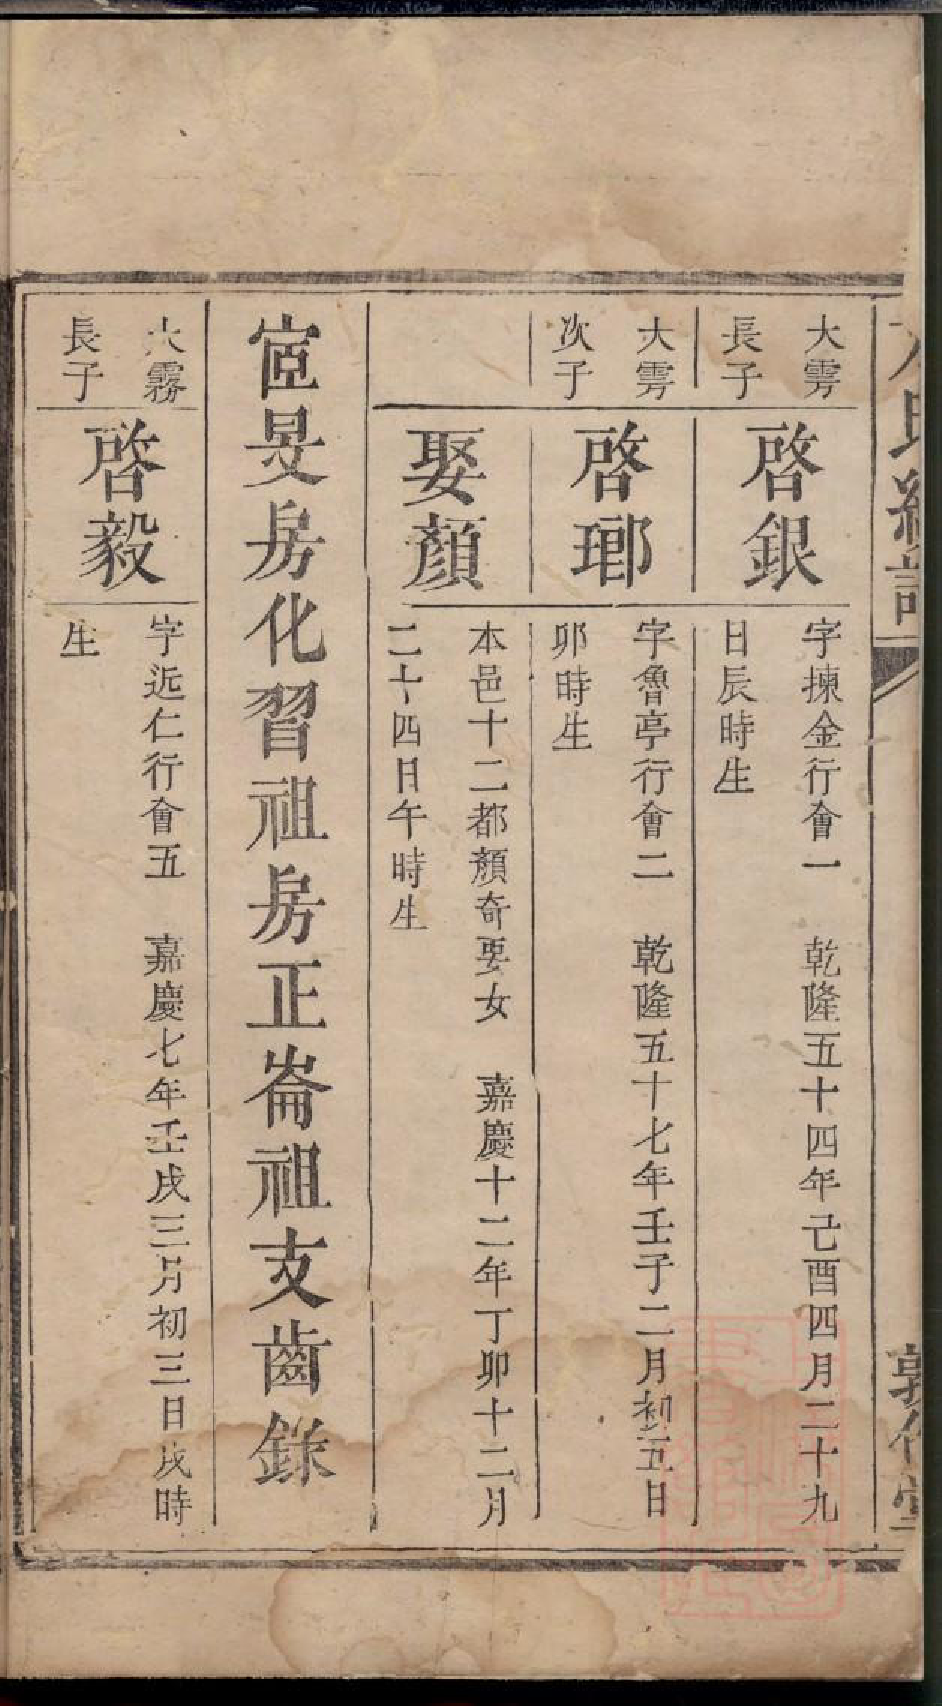 大雱
長子
啓銀
字揀金行會一　乾隆五十四年己酉四月二十九
日辰時生
大雱
次子
啓瑯
字魯亭行會二　乾隆五十七年壬子二月初五日
卯時生
娶顏
本邑十二都顏奇要女　嘉慶十二年丁卯十二月
二十四日午時生
宧旻房化習祖房正崙祖支齒錄
大霧
長子
啓毅
字近仁行會五　嘉慶七年壬戌三月初三日戌時
生